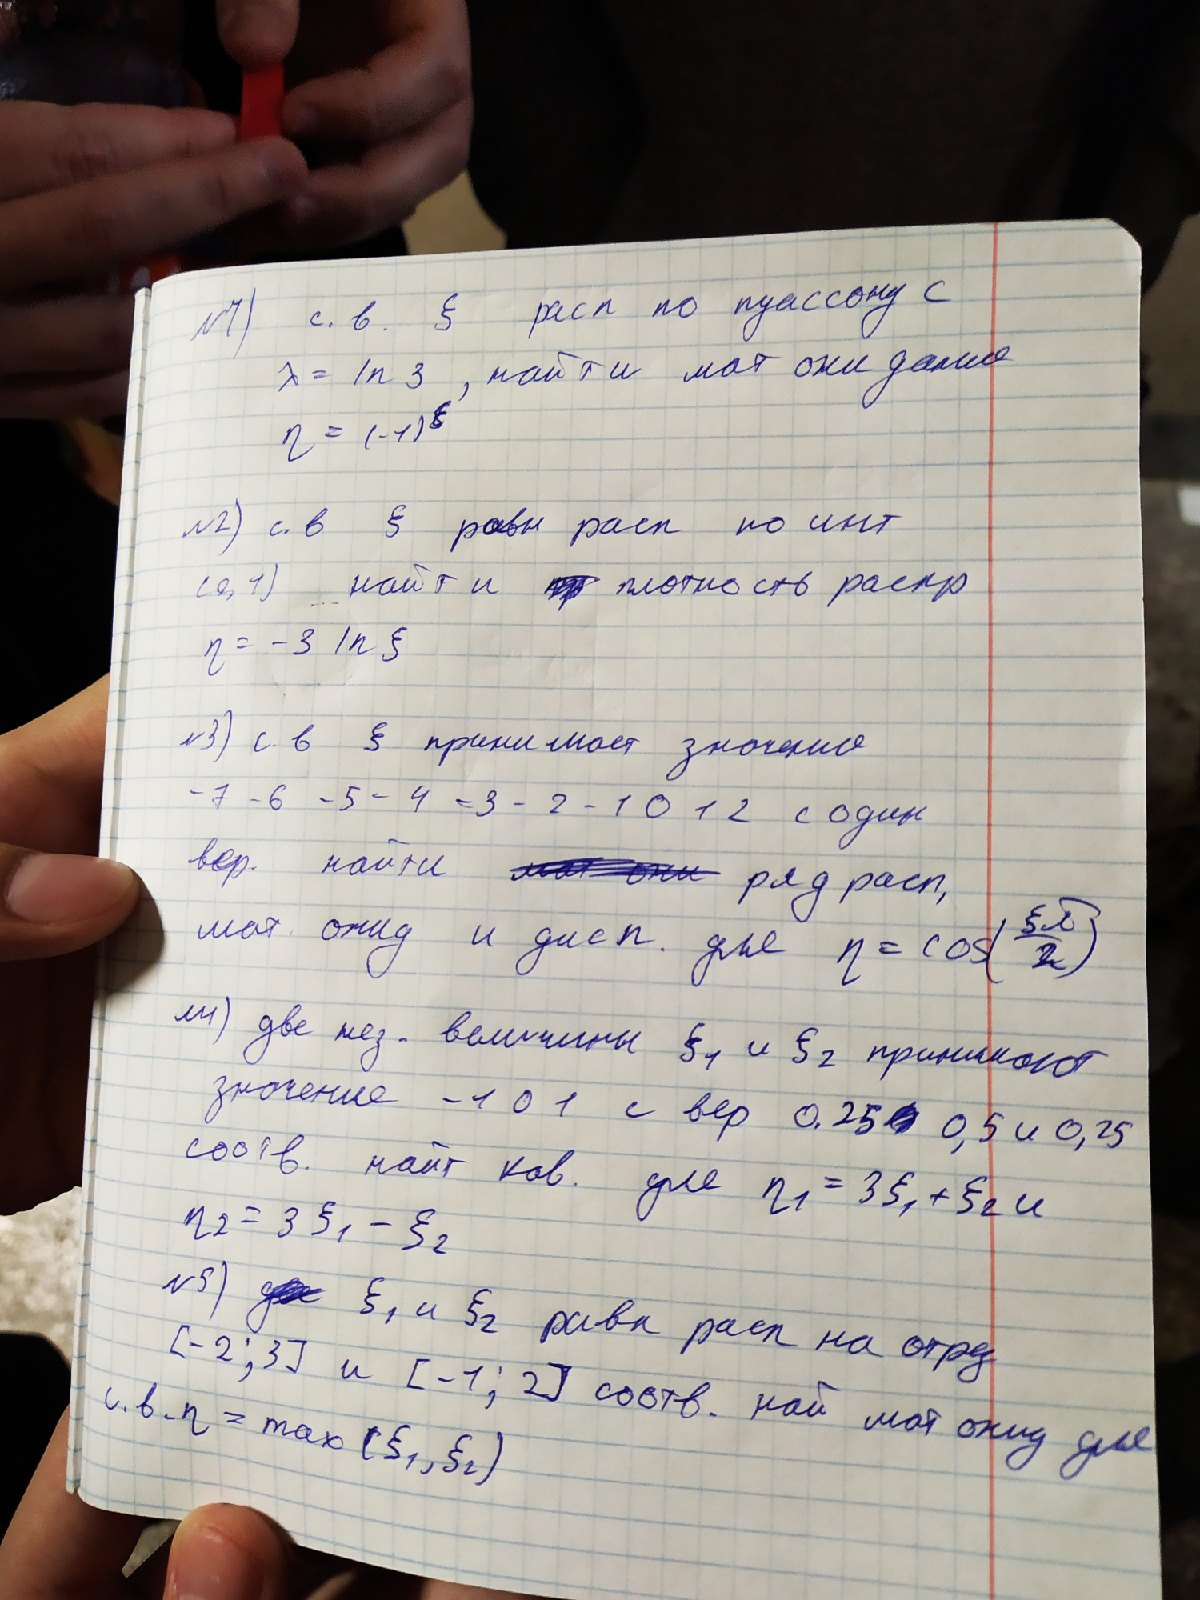 №1) с.в. ξ расп по пуассону с
λ = ln 3, найти мат ожидание
η = (-1)^ξ
№2) с.в ξ равн расп по инт
(0,1) найти плотность распр
η = -3 ln ξ
№3) с.в ξ принимает значение
-7 -6 -5 -4 -3 -2 -1 0 1 2 с один
вер. найти ряд расп,
мат. ожид и дисп. для η = cos(ξπ/2)
№4) две нез. величины ξ1 и ξ2 принимают
значение -1 0 1 с вер 0.25 0,5 и 0,25
соотв. найт ков. для η1 = 3ξ1 + ξ2 и
η2 = 3ξ1 - ξ2
№5) ξ1 и ξ2 равн расп на отрд
[-2; 3] и [-1; 2] соотв. най мат ожид для
с.в. η = max(ξ1, ξ2)